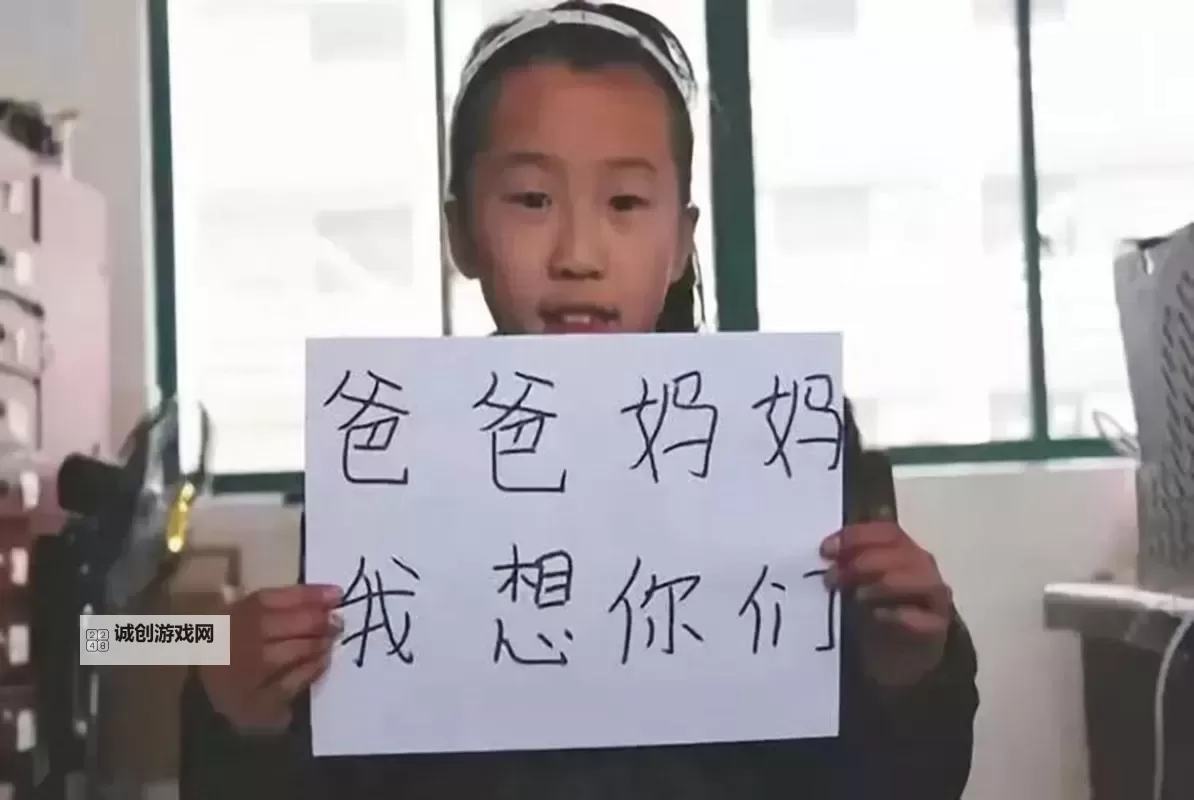 爸爸妈妈
我想你们
诚创游戏网
2248